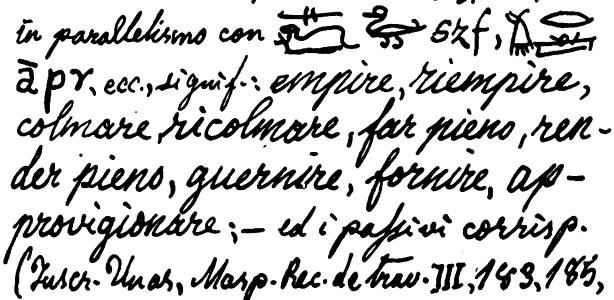 in parallelismo con szf,
āpr, ecc., signif.: empire, riempire,
colmare, ricolmare, far pieno, ren-
der pieno, guernire, fornire, ap-
provigionare; — ed i passivi corrisp.
(Inscr. Unas, Masp. Rec. de trav. III, 183, 185,